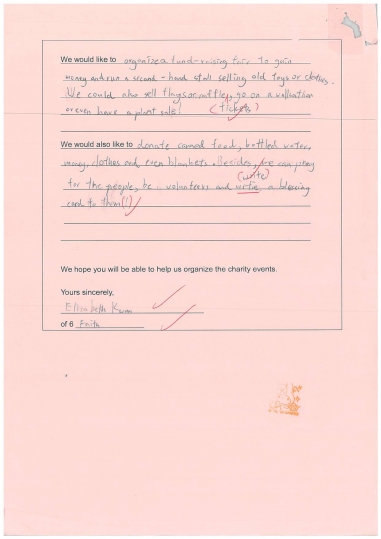 We would like to organise a fund-raising fair to gain
money and run a second-hand stall selling old toys or clothes.
We could also sell flags or raffles, go on a walkathon
(tickets)
or even have a plant sale!
We would also like to donate canned food, bottled water,
money, clothes and even blankets. Besides, we can pray
(write)
for the people, be volunteers and write a blessing
card to them(!)
We hope you will be able to help us organize the charity events.
Yours sincerely,
Elizabeth
of 6 Faith